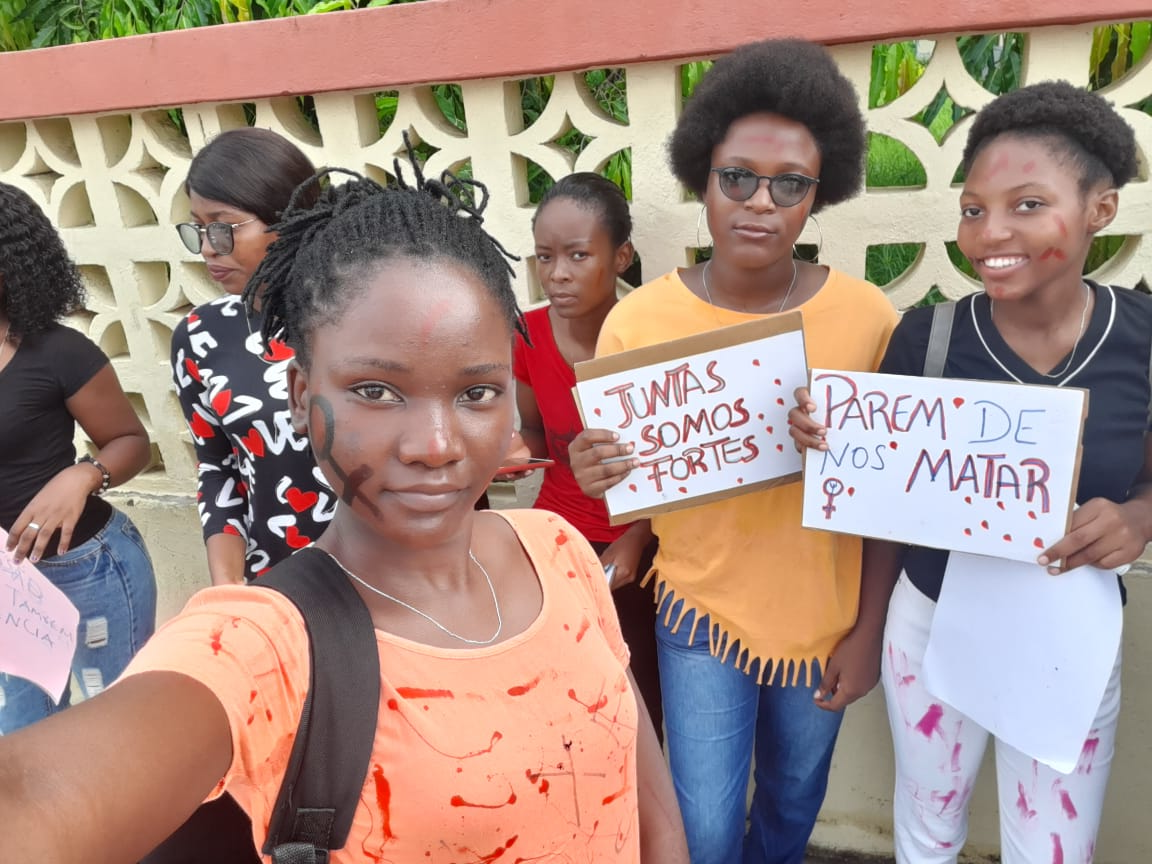 TAMBÉM
JUNTAS
SOMOS
FORTES
PAREM DE
NOS MATAR